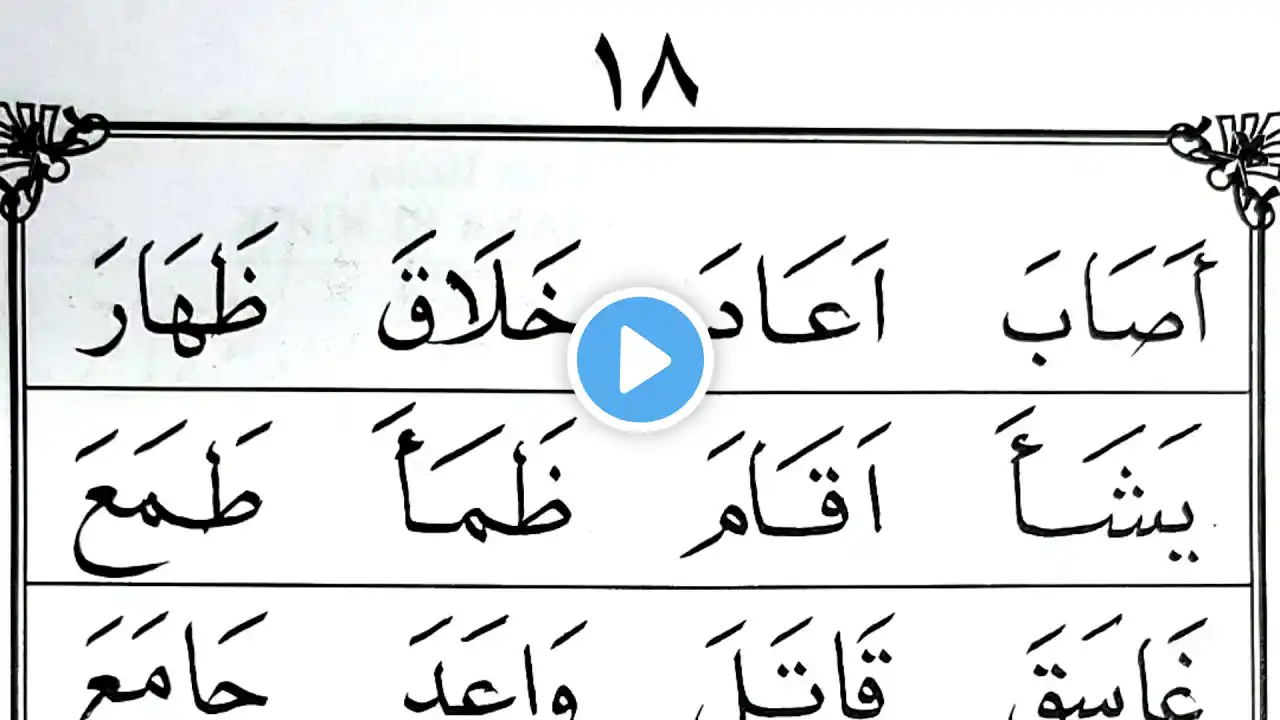 ١٨
أَصَابَ اَعَادَ خَلَاقَ ظَهَارَ
يَشَأَ اَقَامَ ظَمَأَ طَمَعَ
غَاسَقَ قَاتَلَ وَاعَدَ حَامَعَ